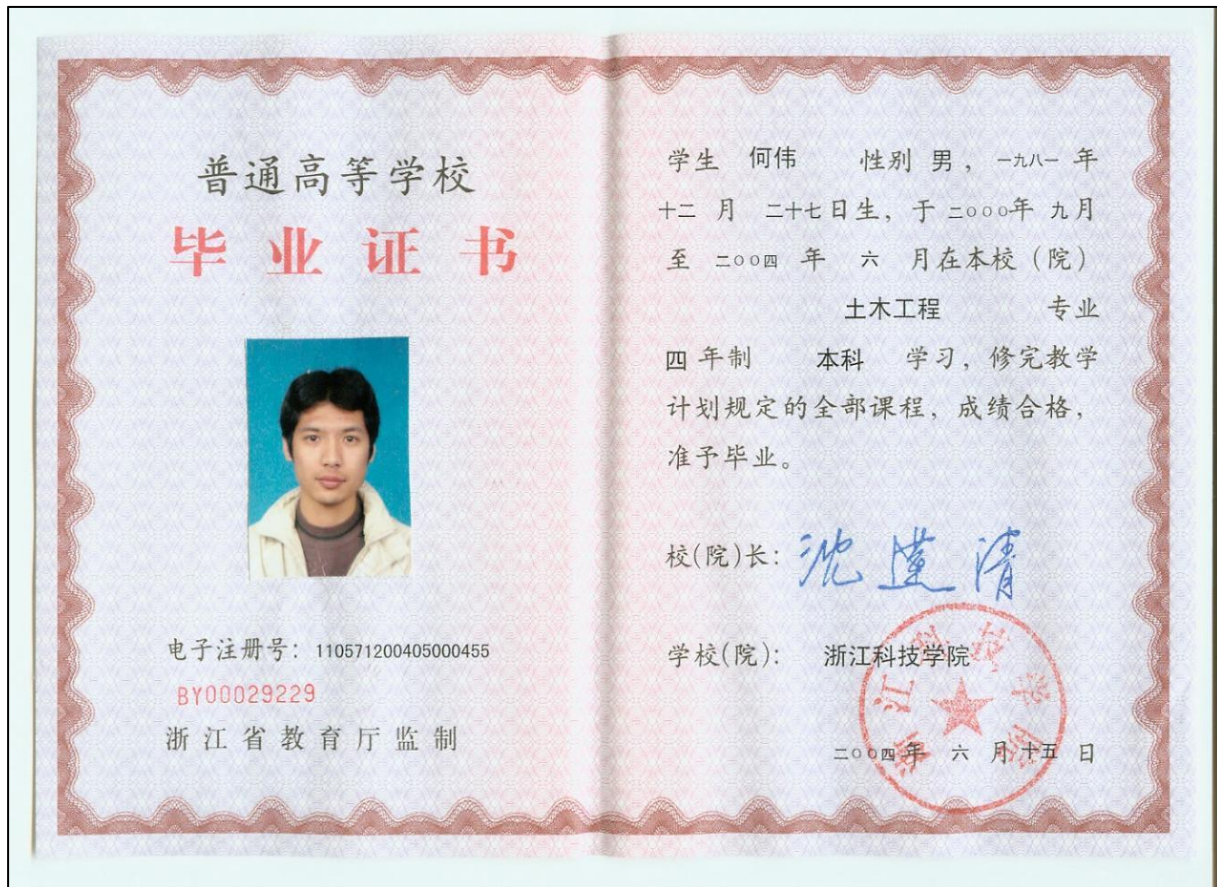 普通高等学校
毕业证书
电子注册号：110571200405000455
BY00029229
浙江省教育厅监制
学生 何伟 性别 男，一九八一 年
十二 月 二十七日生，于 二○○○年 九月
至 二○○四 年 六 月在本校（院）
土木工程 专业
四 年制 本科 学习，修完教学
计划规定的全部课程，成绩合格，
准予毕业。
校(院)长：
学校(院)： 浙江科技学院
浙江科技学院
二○○四年 六 月十五 日